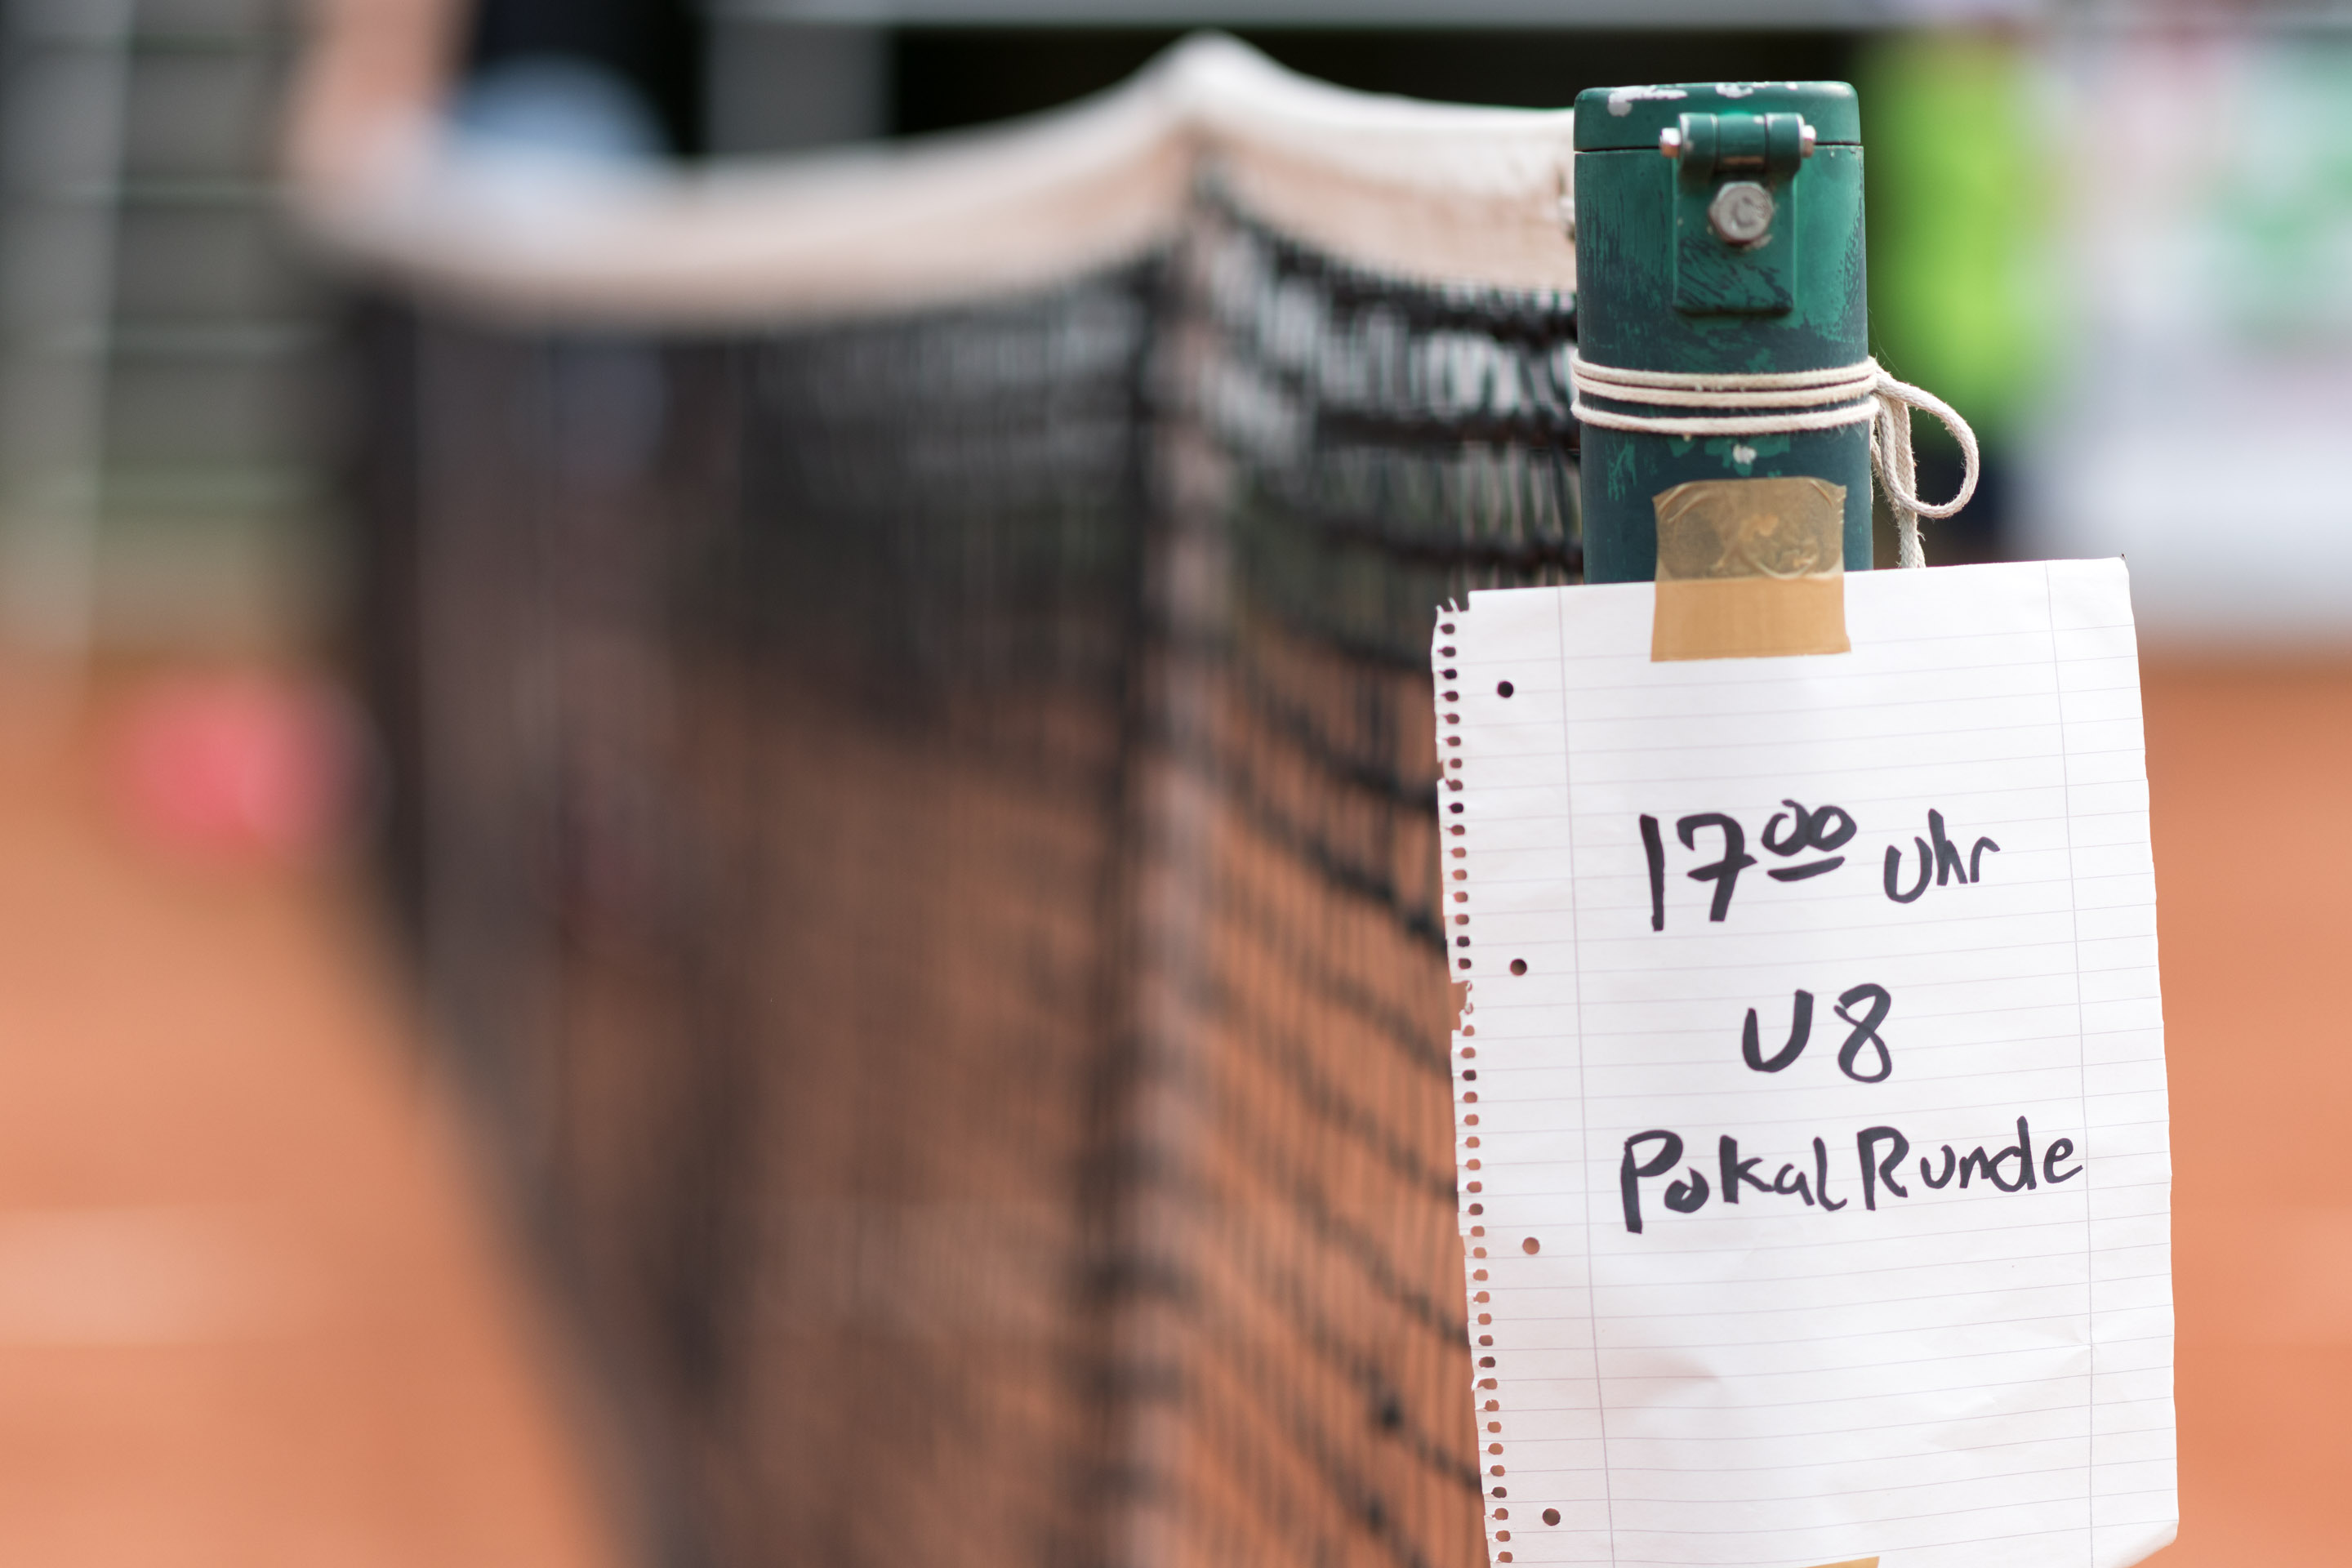 1700 Uhr
U8
Pokal Runde